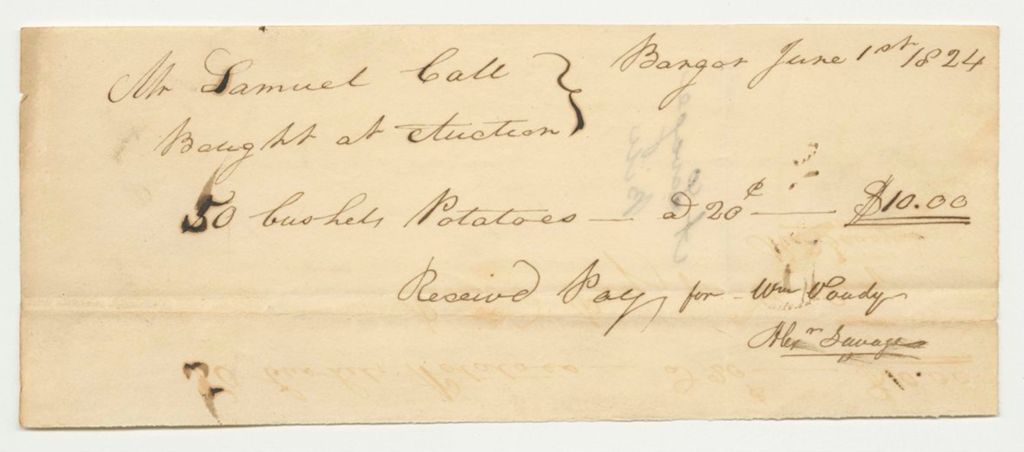 Bangor June 1st 1824
Mr Samuel Call
Bought at Auction
50 bushels Potatoes — a 20¢ — $10.00
Received Pay for Wm
Alexr Savage